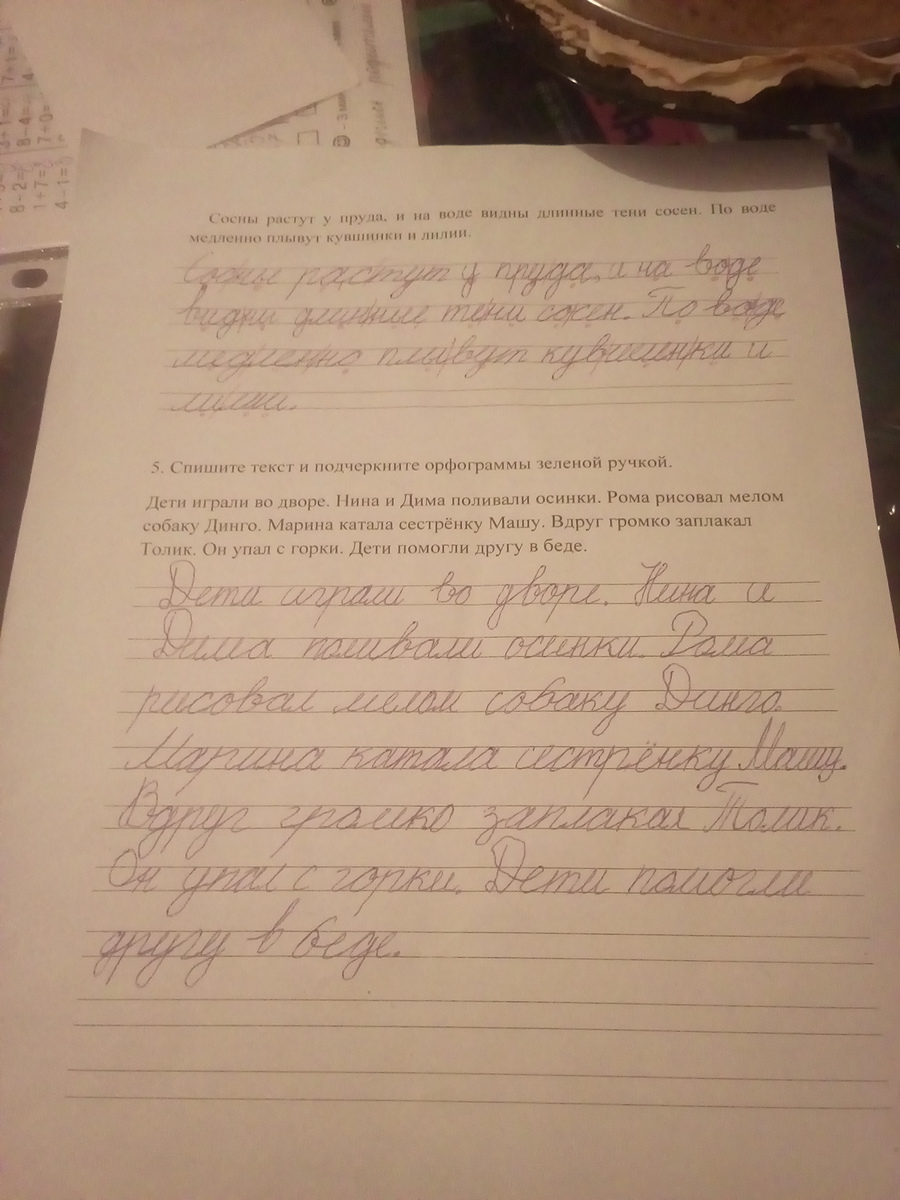 8-2=
1+7=
4-1=
8-4=
7+0=
Сосны растут у пруда, и на воде видны длинные тени сосен. По воде
медленно плывут кувшинки и лилии.
Сосны растут у пруда, и на воде
видны длинные тени сосен. По воде
медленно плывут кувшинки и
лилии.
5. Спишите текст и подчеркните орфограммы зеленой ручкой.
Дети играли во дворе. Нина и Дима поливали осинки. Рома рисовал мелом
собаку Динго. Марина катала сестрёнку Машу. Вдруг громко заплакал
Толик. Он упал с горки. Дети помогли другу в беде.
Дети играли во дворе. Нина и
Дима поливали осинки. Рома
рисовал мелом собаку Динго.
Марина катала сестрёнку Машу.
Вдруг громко заплакал Толик.
Он упал с горки. Дети помогли
другу в беде.